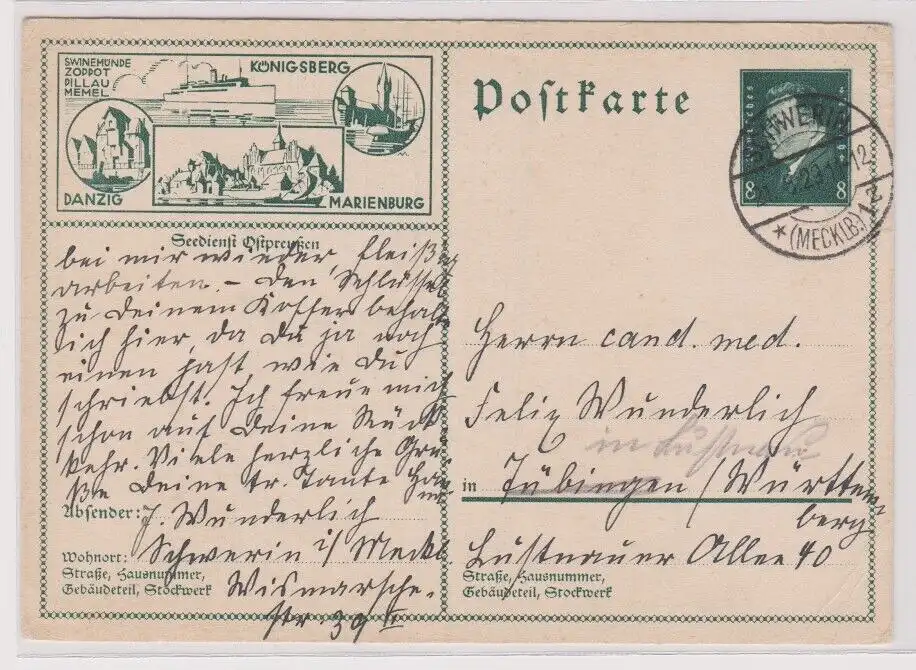 SWINEMÜNDE
ZOPPOT
PILLAU
MEMEL
KÖNIGSBERG
DANZIG
MARIENBURG
Seedienst Ostpreußen
bei mir wieder fleißig
arbeiten. – Den Schlüssel
zu Deinem Koffer behalte
ich hier, da Du ja noch
einen hast, wie Du
schriebst. Ich freue mich
schon auf Deine Rück-
kehr. Viele herzliche Grü-
ße Deine tr. Tante
Absender: J. Wunderlich
Wohnort: Schwerin i/Meckl.
Straße, Hausnummer,
Gebäudeteil, Stockwerk
Wismarsche-
str. 39 II
Postkarte
8 8
SCHWERIN
(MECKLB.) 1
Herrn cand. med.
Felix Wunderlich
in Lustnau
in Tübingen / Württem-
berg
Lustnauer Allee 40
Straße, Hausnummer,
Gebäudeteil, Stockwerk